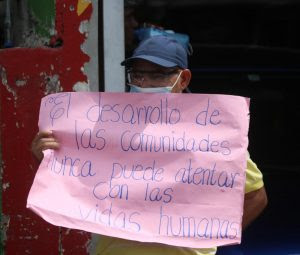 "El desarrollo de
las comunidades
nunca puede atentar
con las
vidas humanas